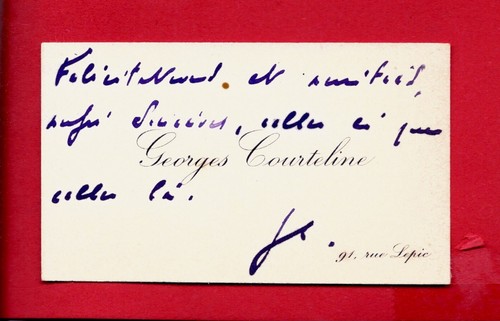 Félicitations et amitiés,
aussi sincères, celles ci que
Georges Courteline
celles là.
91. rue Lepic